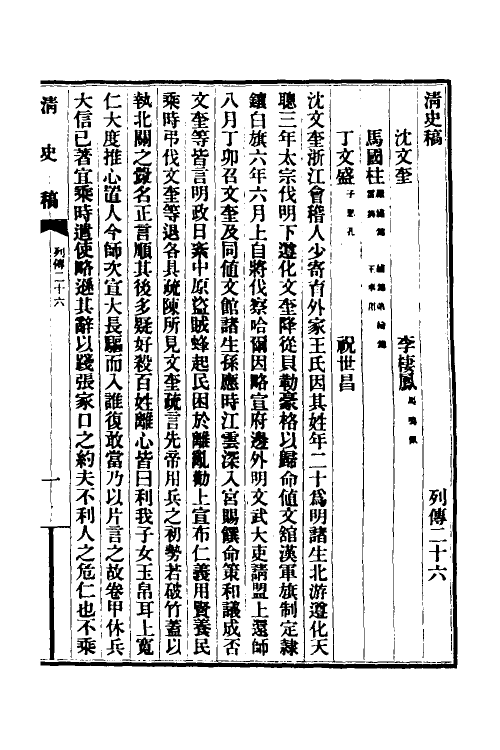 清史稿
列傳二十六
沈文奎　李棲鳳 馬鳴佩
馬國柱
丁文盛 子思孔　祝世昌
沈文奎浙江會稽人少寄育外家王氏因其姓年二十為明諸生北游遵化天
聰三年太宗伐明下遵化文奎降從貝勒豪格以歸命值文館漢軍旗制定隸
鑲白旗六年六月上自將伐察哈爾因略宣府邊外明文武大吏請盟上還師
八月丁卯召文奎及同值文館諸生孫應時江雲深入宮賜饌命策和議成否
文奎等皆言明政日紊中原盜賊蜂起民困於離亂勸上宣布仁義用賢養民
乘時弔伐文奎等退各具疏陳所見文奎疏言先帝用兵之初勢若破竹蓋以
執北關之釁名正言順其後多疑好殺百姓離心皆曰利我子女玉帛耳上寬
仁大度推心置人今師次宣大長驅而入誰復敢當乃以片言之故卷甲休兵
大信已著宜乘時遣使略遜其辭以踐張家口之約夫不利人之危仁也不乘
清史稿　列傳二十六　一